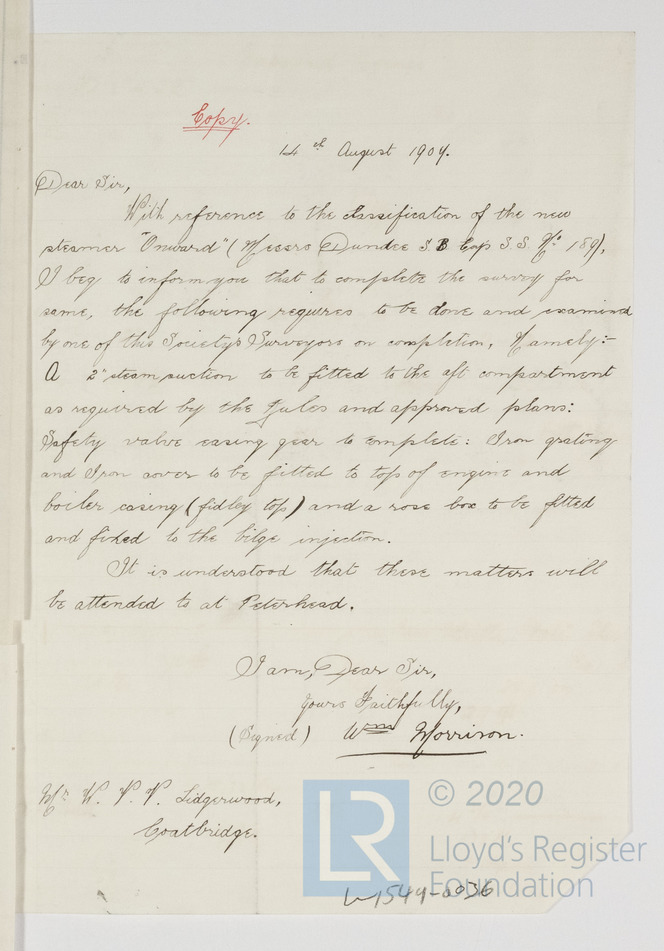 Copy.
4th August 1904.
Dear Sir,
With reference to the classification of the new
steamer "Onward" (Messrs Dundee S B Coys S.S. No. 189),
I beg to inform you that to complete the survey for
same, the following requires to be done and examined
by one of this Society's Surveyors on completion, Namely:-
A 2" steam suction to be fitted to the aft compartment
as required by the Rules and approved plans:
Safety valve easing gear to complete: Iron grating
and Iron cover to be fitted to top of engine and
boiler casing (fidley top) and a rose box to be fitted
and fixed to the bilge injection.
It is understood that these matters will
be attended to at Peterhead.
I am, Dear Sir,
Yours Faithfully,
(Signed) Wm Morrison.
Mr W. Lidgerwood,
Coatbridge.
LR
© 2020
Lloyd's Register
Foundation
1544-0036